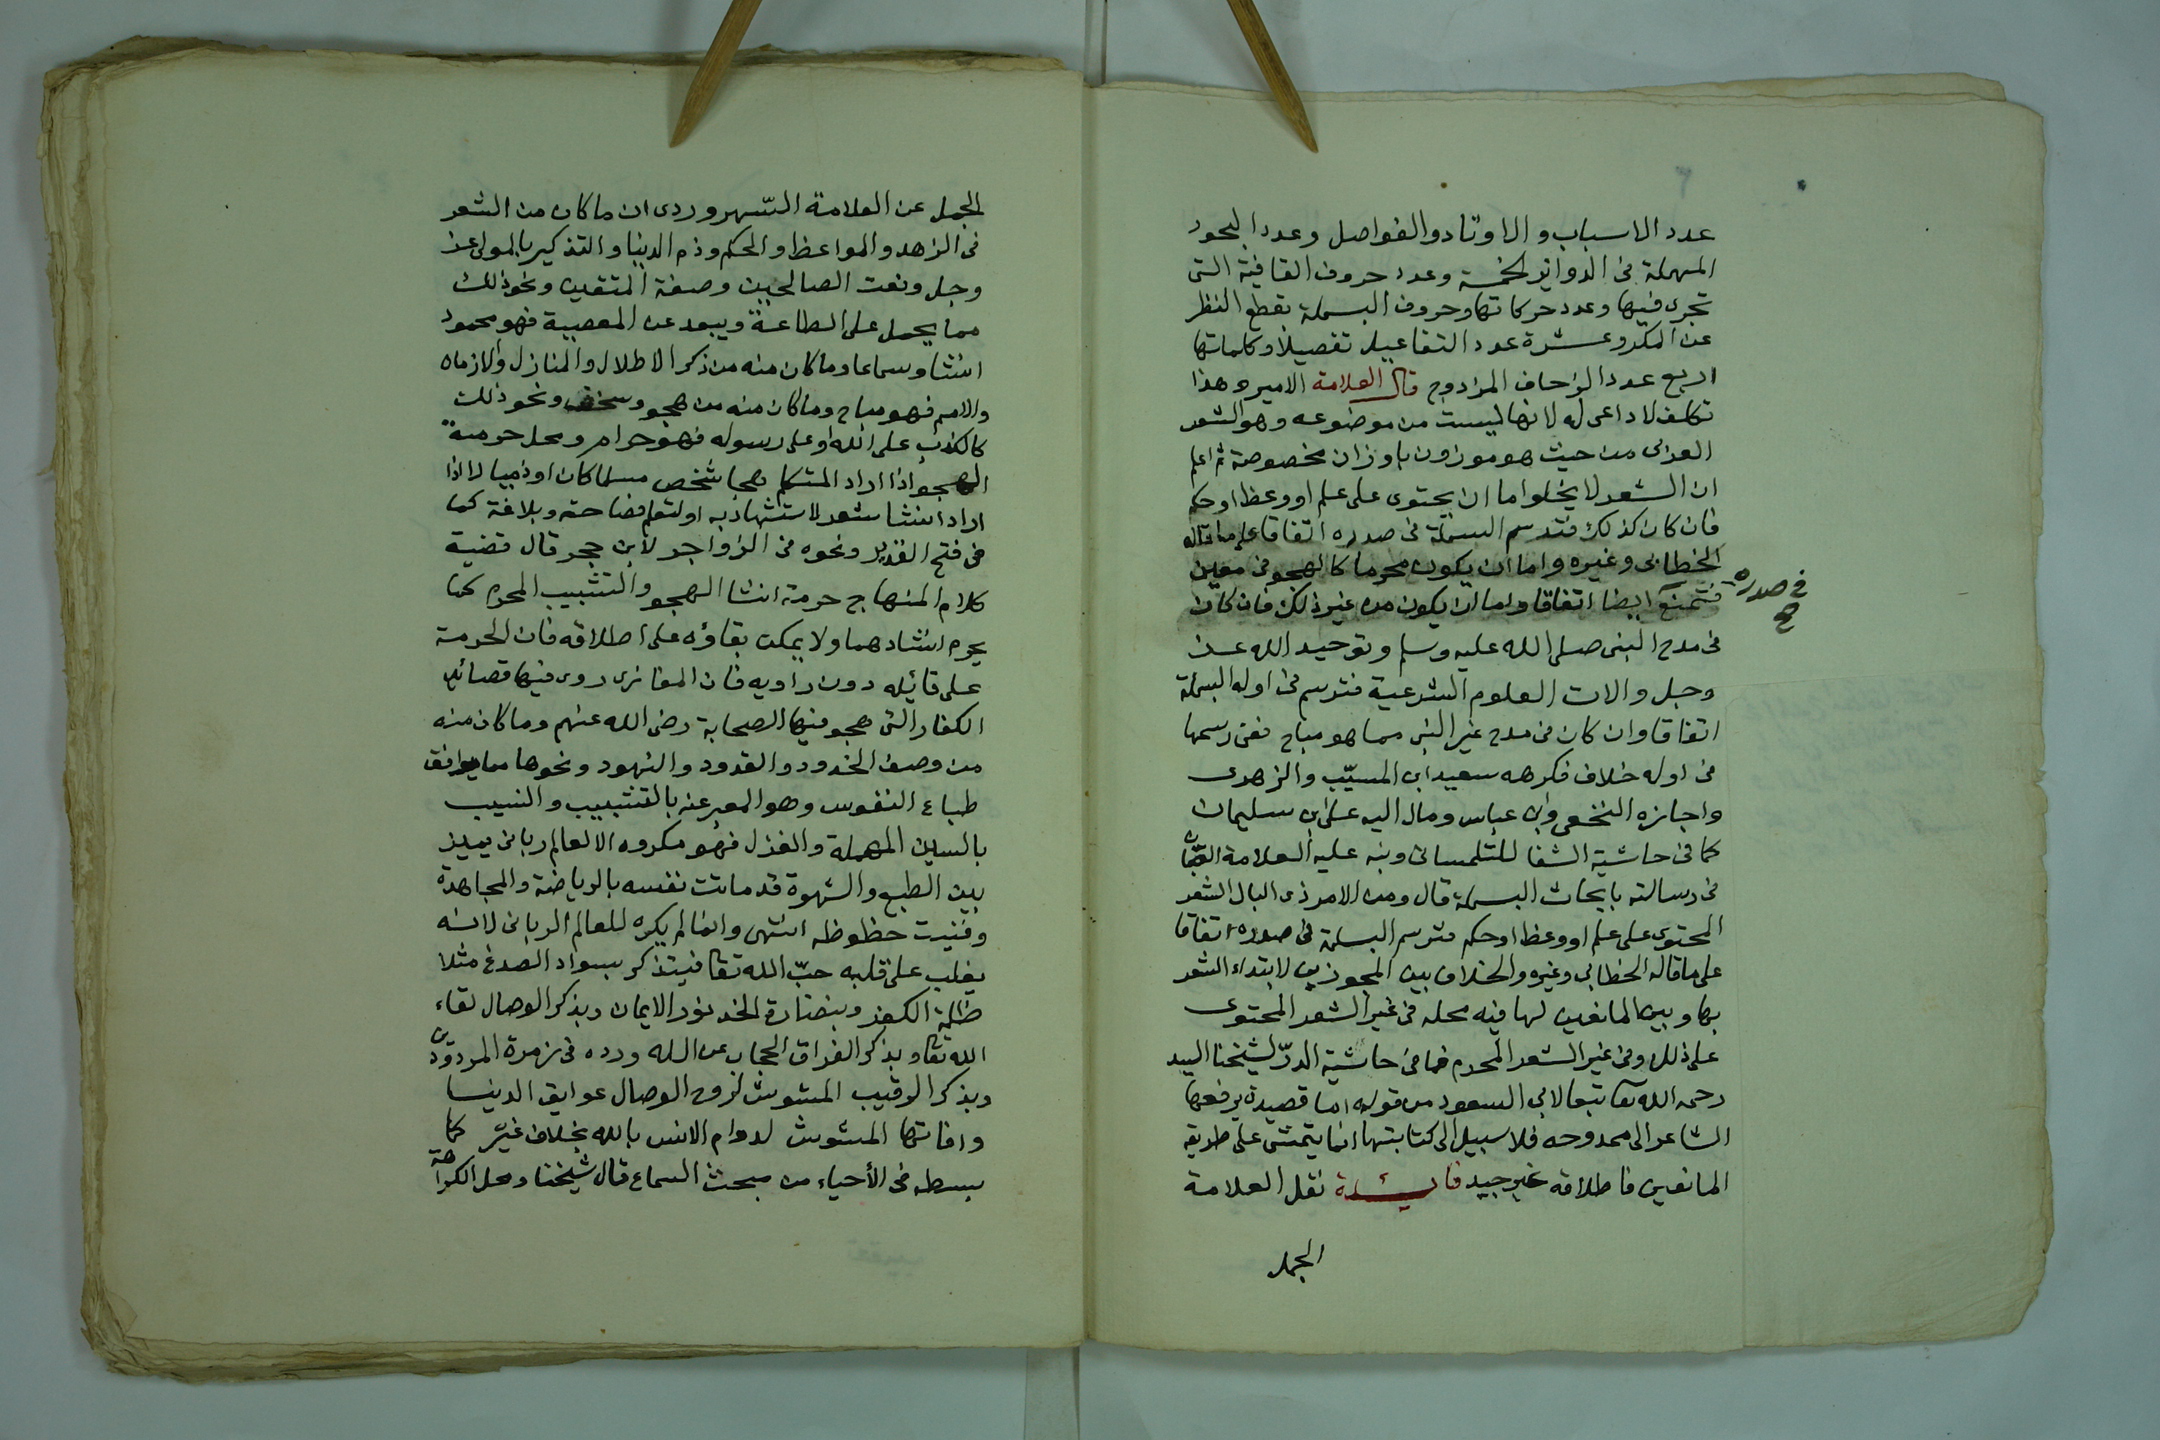 عدد الاسباب والاوتاد والفواصل وعدد البحور
المهملة فى الدوائر الخمسة وعدد حروف القافية التى
تجرى فيها وعدد حركاتها وحروف البسملة بقطع النظر
عن المكرر عشرة عدد التفاعيل تفصيلا وكلماتها
اربع عدد الزحاف المزدوج قال العلامة الامير وهذا
تكلف لا داعى له لانها ليست من موضوعه وهو الشعر
العربى من حيث هو موزون باوزان مخصوصة ثم اعلم
ان الشعر لا يخلو اما ان يحتوى على علم او وعظ او حكم
فان كان كذلك فترسم البسملة فى صدره اتفاقا على ما قاله
الخطابى وغيره واما ان يكون محرما كالهجو فى معين
فتمنع ايضا اتفاقا واما ان يكون من غير ذلك فان كان
فى صدره
صح
فى مدح النبى صلى الله عليه وسلم وتوحيد الله عز
وجل والات العلوم الشرعية فترسم فى اوله البسملة
اتفاقا وان كان فى مدح غير النبى مما هو مباح ففى رسمها
فى اوله خلاف فكرهه سعيد ابن المسيّب والزهرى
واجازه النخعى وابن عباس ومال اليه على بن سليمان
كما فى حاشية الشفا للتلمسانى ونبه عليه العلامة الصبان
فى رسالته بابحاث البسملة قال ومن الامر ذى البال الشعر
المحتوى على علم او وعظ او حكم فترسم البسملة فى صدره اتفاقا
على ما قاله الخطابى وغيره والخلاف بين المجوزين لابتداء الشعر
بها وبين المانعين لها فيه محله فى غير الشعر المحتوى
على ذلك وفى غير الشعر المحرم فما فى حاشية الدرّ لشيخنا السيد
رحمه الله تعا تبعا لابى السعود من قوله اما قصيدة يرفعها
الشاعر الى ممدوحه فلا سبيل الى كتابتها انما يتمشى على طريقة
المانعين فاطلاقه غير جيد فايدة نقل العلامة
الجمل
الجمل عن العلامة السّهروردى ان ما كان من الشعر
فى الزهد والمواعظ والحكم وذم الدنيا والتذكير بالمولى عز
وجل ونعت الصالحين وصفة المتقين ونحو ذلك
مما يحمل على الطاعة ويبعد عن المعصية فهو محمود
انشا وسماعا وما كان منه من ذكر الاطلال والمنازل والازمان
والامم فهو مباح وما كان منه من هجو وسخف ونحو ذلك
كالكذب على الله او على رسوله فهو حرام ومحل حرمة
الهجو اذا اراد المتكلم هجا شخص مسلما كان او ذميا لا اذا
اراد انشا شعر لاستشهاد به او لتعلم فصاحته وبلاغة كما
فى فتح القدير ونحوه فى الزواجر لابن حجر قال قضية
كلام المنهاج حرمة انشا الهجو والتشبيب المحرم كما
يحرم انشادهما ولا يمكن بقاؤه على اطلاقه فان الحرمة
على قائله دون راويه فان المغازى روى فيها قصائد
الكفار التى هجو فيها الصحابة رضى الله عنهم وما كان منه
من وصف الخدود والقدود والنهود ونحوها مما يوافق
طباع النفوس وهو المعبر عنه بالتشبيب والنسيب
بالسين المهملة والغزل فهو مكروه الا لعالم ربانى يميز
بين الطبع والشهوة قد ماتت نفسه بالرياضة والمجاهدة
وفنيت حظوظه انتهى وانما لم يكره للعالم الربانى لانه
يغلب على قلبه حبّ الله تعا فيتذكر بسواد الصدغ مثلا
ظلمة الكفر وبنضارة الخد نور الايمان وبذكر الوصال لقاء
الله تعا وبذكر الفراق الحجاب عن الله ورده فى زمرة المردودين
وبذكر الرقيب المشوش لروح الوصال عوايق الدنيا
وافاتها المشوش لدوام الانس بالله بخلاف غيرّ كما
بسطه فى الأحياء من مبحث السماع قال شيخنا ومحل الكراهة